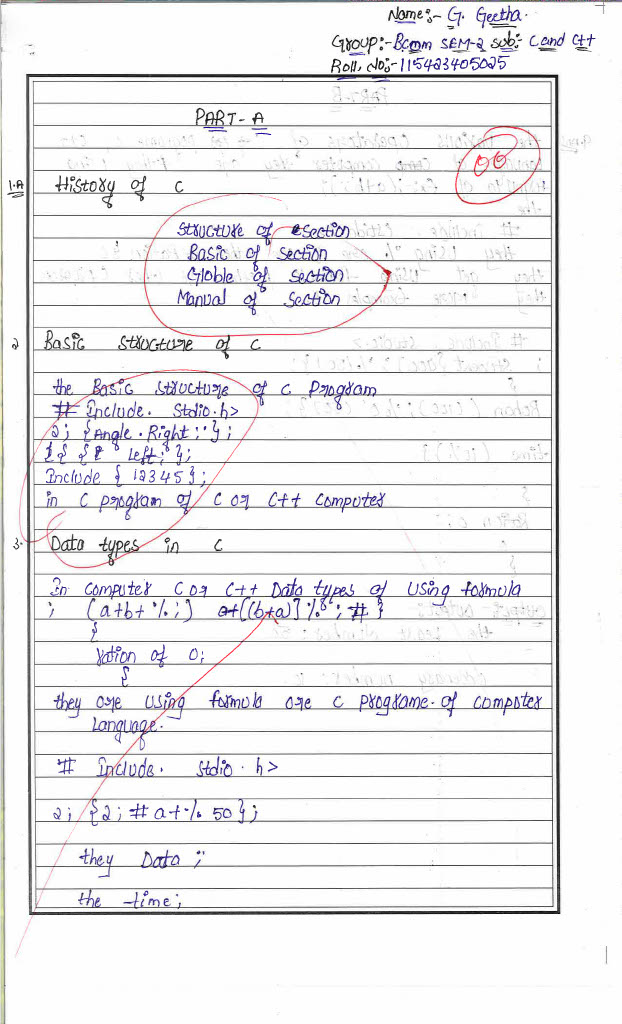 Name:- G. Geetha.
Group:- Bcom SEM-2 sub:- C and C++
Roll. No:- 115423405025
PART-A
00
1.A History of C
Structure of section
Basic of section
Globle of section
Manual of section
2 Basic structure of C
the Basic structure of C program
# include. Stdio.h>
2; {Angle.Right;'};
left;};
Include {12345};
in C program of C or C++ computer
3. Data types in C
In computer C or C++ Data types of using formula
; (a+b+%;) [(b+a)]%; #}
{
ration of 0;
{
they are using formula are C programe. of computer
Language.
# include. Stdio.h>
2; {2; # a+% 50};
they Data ;
the time;